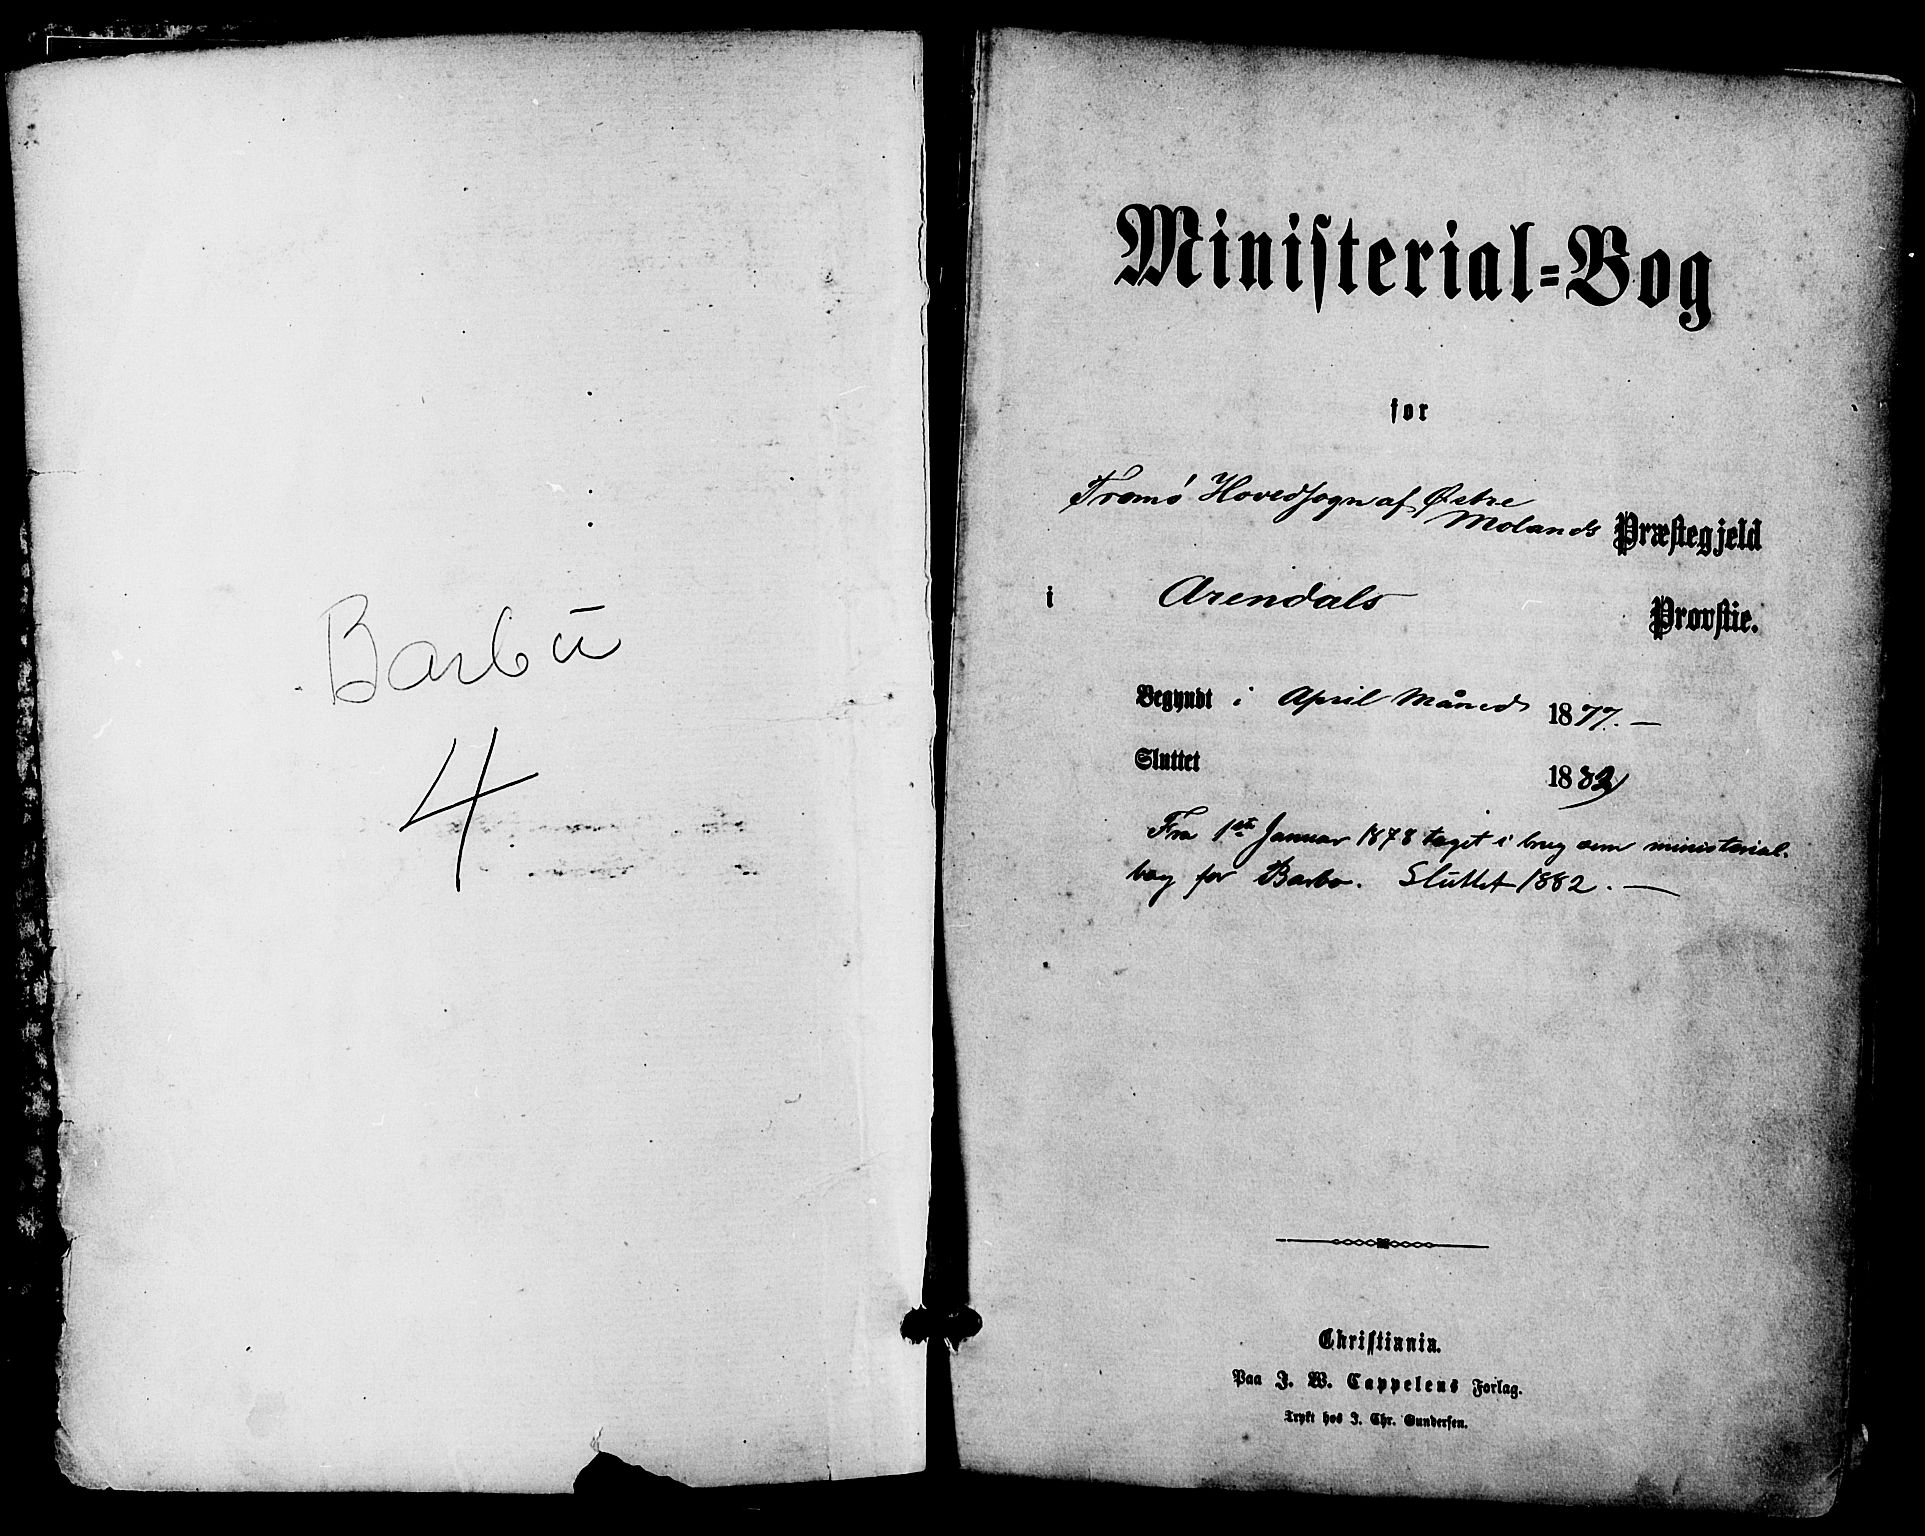 Barbu
4
Ministerial=Bog
for
Tromø Hovedsogn af Østre
Molands Præstegjeld
i Arendals Provstie.
Begyndt i April Måned 1877. —
Sluttet 1882
Fra 1ste Januar 1878 taget i brug som ministerial-
bog for Barbo. Sluttet 1882. —
Christiania.
Paa J. W. Cappelens Forlag.
Trykt hos J. Chr. Gundersen.